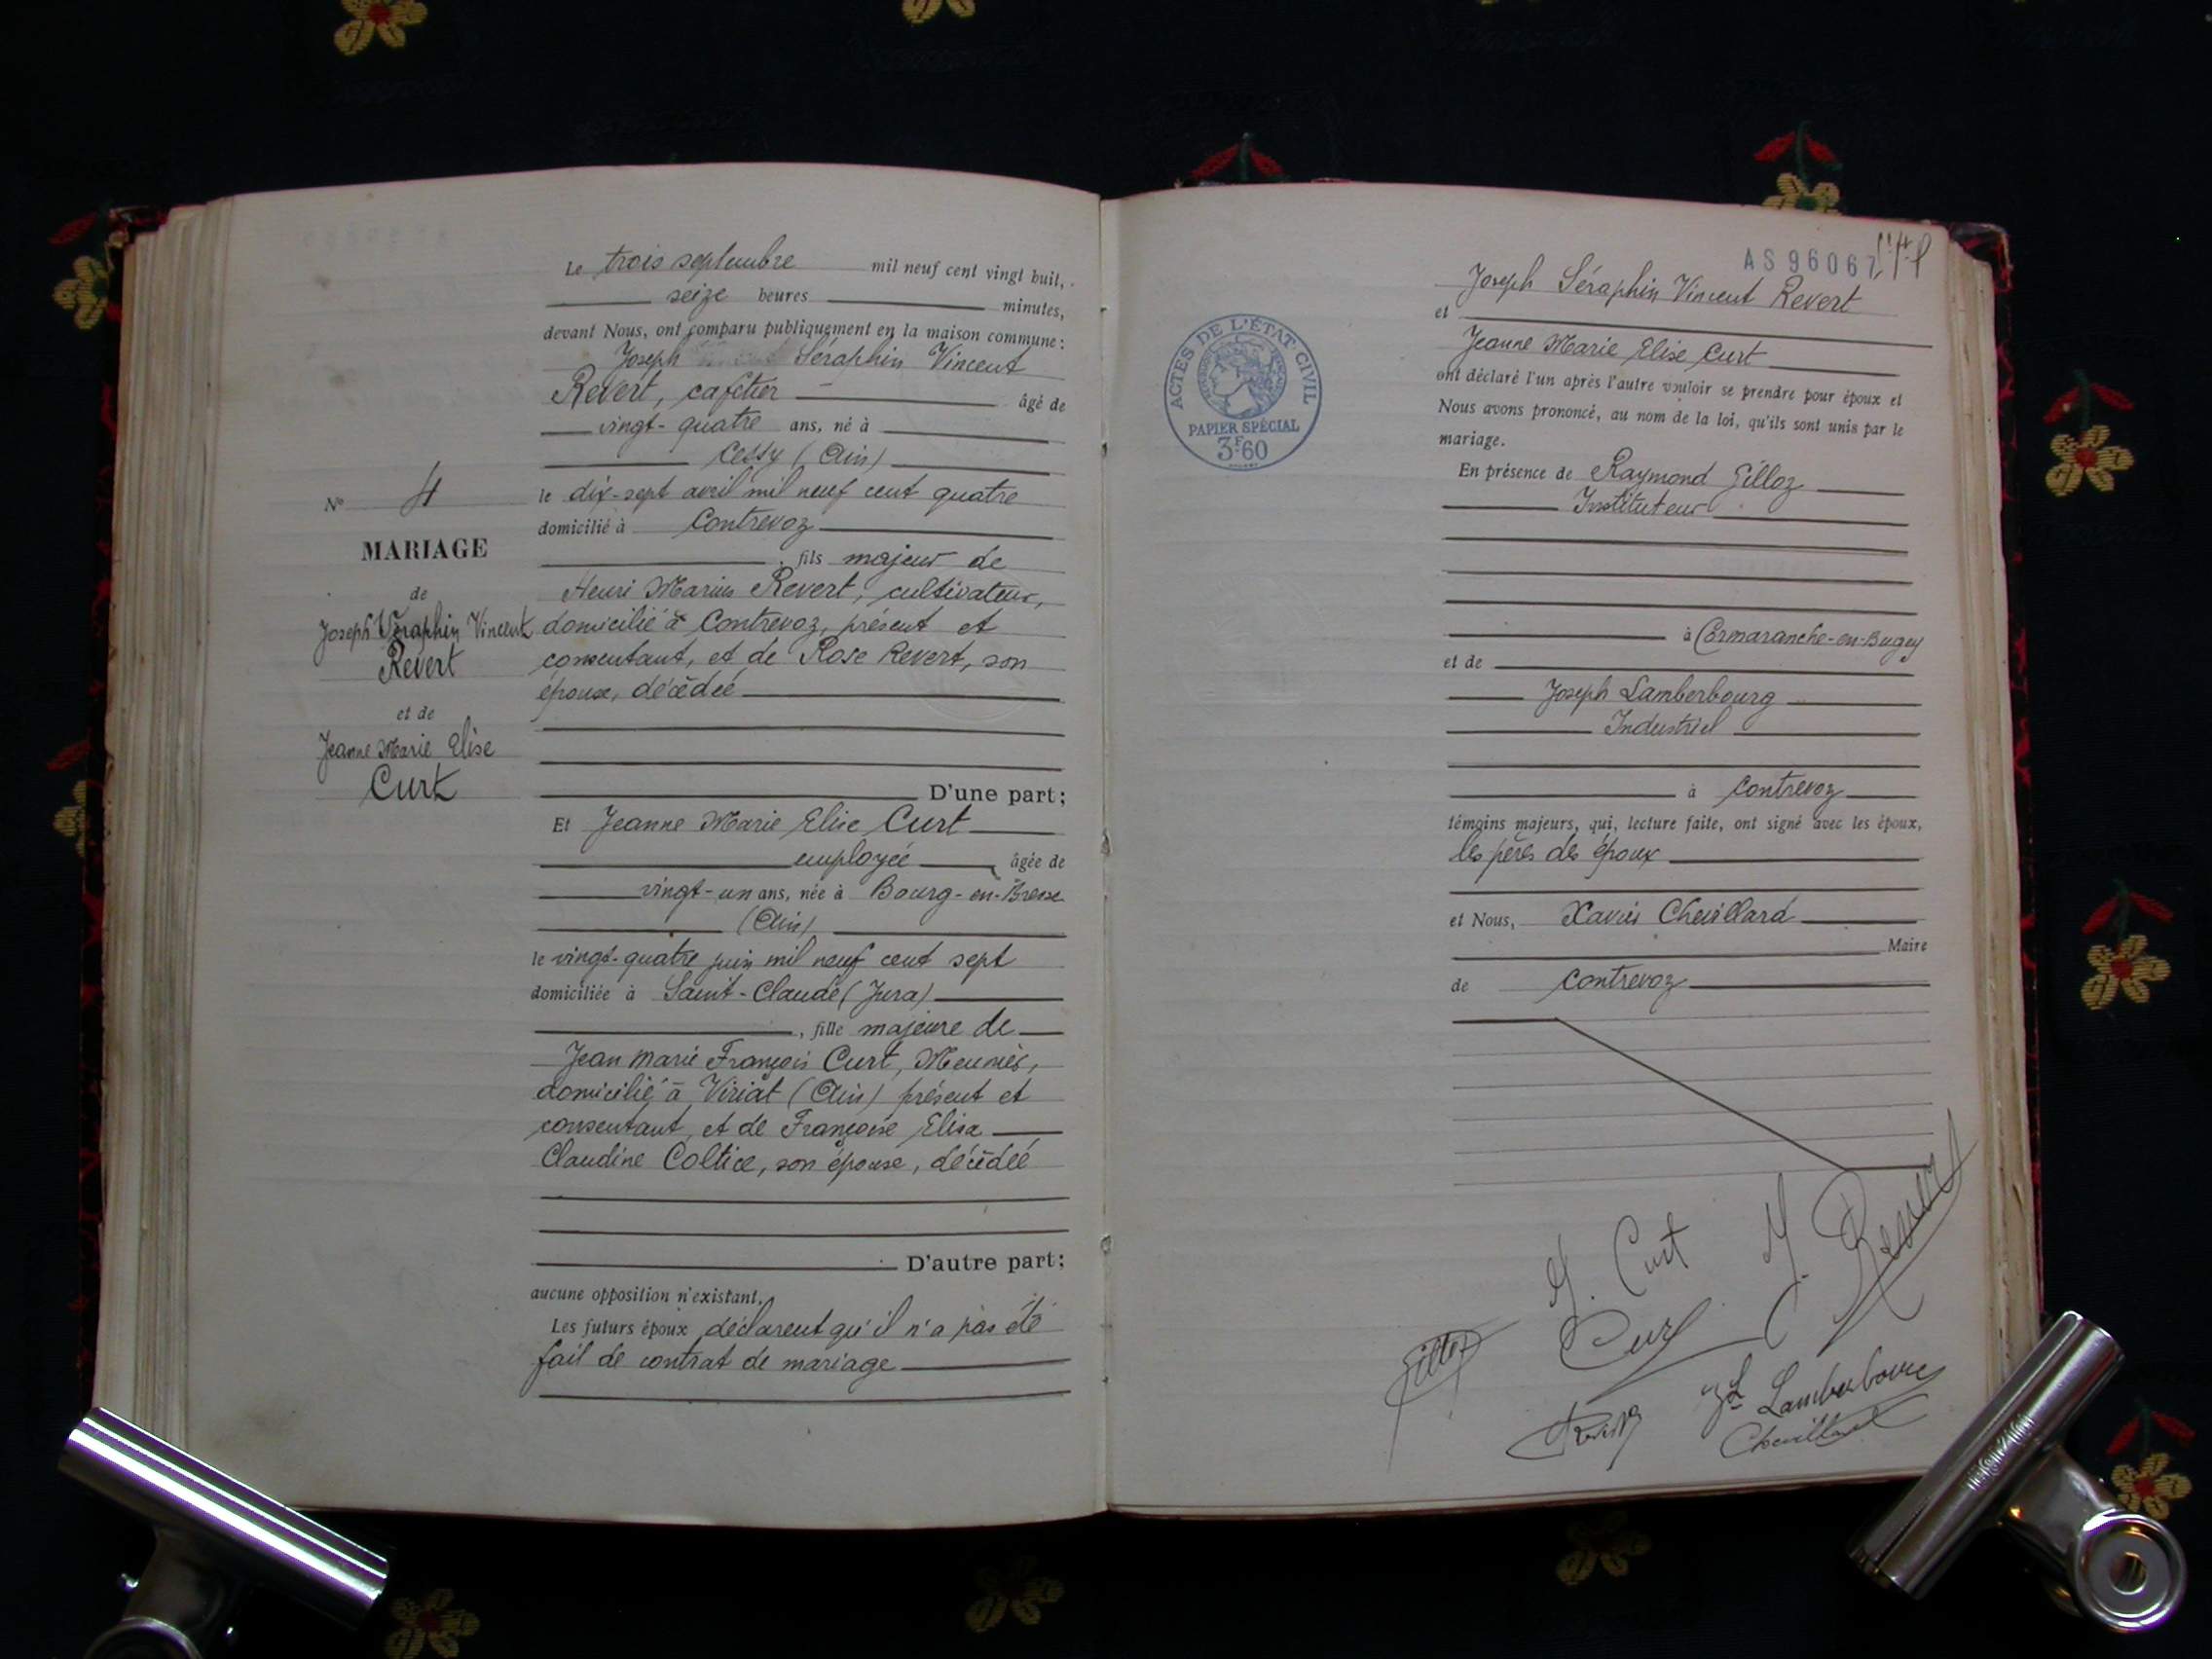 Le trois septembre mil neuf cent vingt huit,
seize heures minutes,
devant Nous, ont comparu publiquement en la maison commune :
Joseph Séraphin Vincent
Revert, cafetier âgé de
vingt-quatre ans, né à
Cessy (Ain)
le dix-sept avril mil neuf cent quatre
domicilié à Contrevoz
, fils majeur de
Henri Marius Revert, cultivateur,
domicilié à Contrevoz, présent et
consentant, et de Rose Revert, son
épouse, décédée
D'une part ;
Et Jeanne Marie Elise Curt
employée âgée de
vingt-un ans, née à Bourg-en-Bresse
(Ain)
le vingt-quatre juin mil neuf cent sept
domiciliée à Saint-Claude (Jura)
, fille majeure de
Jean Marie François Curt, Meunier,
domicilié à Viriat (Ain) présent et
consentant, et de Françoise Elisa
Claudine Coltice, son épouse, décédée
D'autre part ;
aucune opposition n'existant.
Les futurs époux déclarent qu'il n'a pas été
fait de contrat de mariage
N° 4
MARIAGE
de
Joseph Séraphin Vincent
Revert
et de
Jeanne Marie Elise
Curt
AS 96067
ACTES DE L'ÉTAT CIVIL
PAPIER SPÉCIAL
3F60
Joseph Séraphin Vincent Revert
et
Jeanne Marie Elise Curt
ont déclaré l'un après l'autre vouloir se prendre pour époux et
Nous avons prononcé, au nom de la loi, qu'ils sont unis par le
mariage.
En présence de Raymond Gilloz
Instituteur
à Cormaranche-en-Bugey
et de
Joseph Lamberbourg
Industriel
à Contrevoz
témoins majeurs, qui, lecture faite, ont signé avec les époux,
les pères des époux
et Nous, Xavier Chevillard
Maire
de Contrevoz
J. Curt
Revert
Curt
Gilloz
Lamberbourg
Chevillard